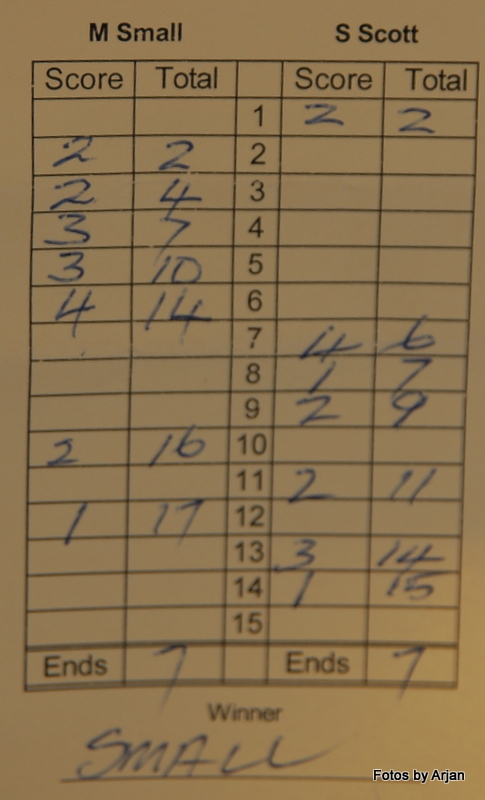 M Small S Scott
Score Total Score Total
1 2 2
2 2 2
2 4 3
3 7 4
3 10 5
4 14 6
7 4 6
8 1 7
9 2 9
2 16 10
11 2 11
1 17 12
13 3 14
14 1 15
15
Ends 7 Ends 7
Winner
SMALL
Fotos by Arjan